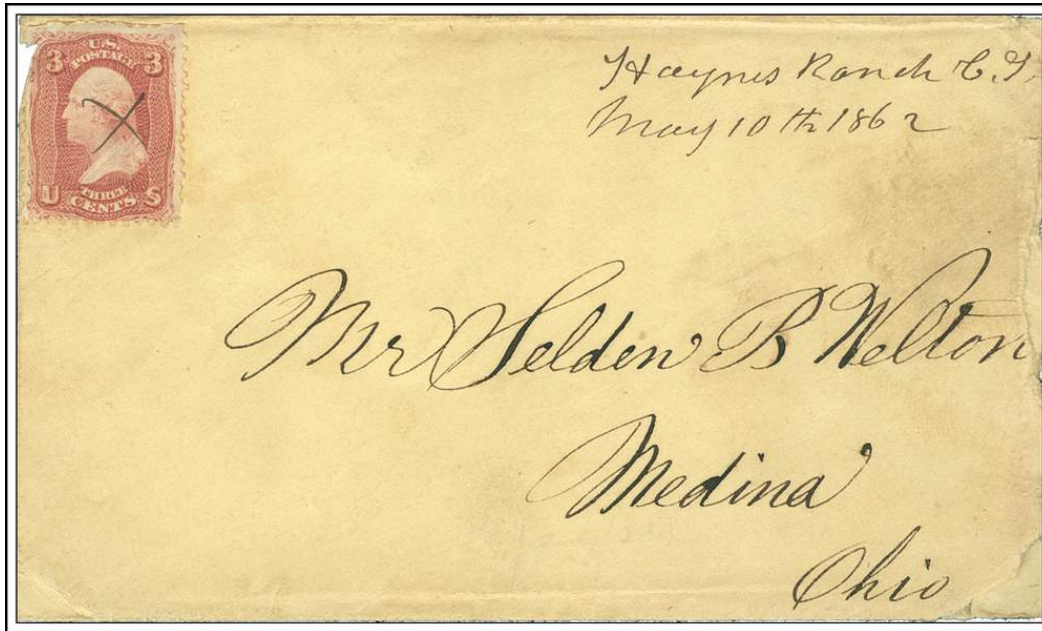 U.S.
POSTAGE
3 3
U S
THREE
CENTS
Haynes Ranch C.T.
May 10th 1862
Mr Selden B Welton
Medina
Ohio